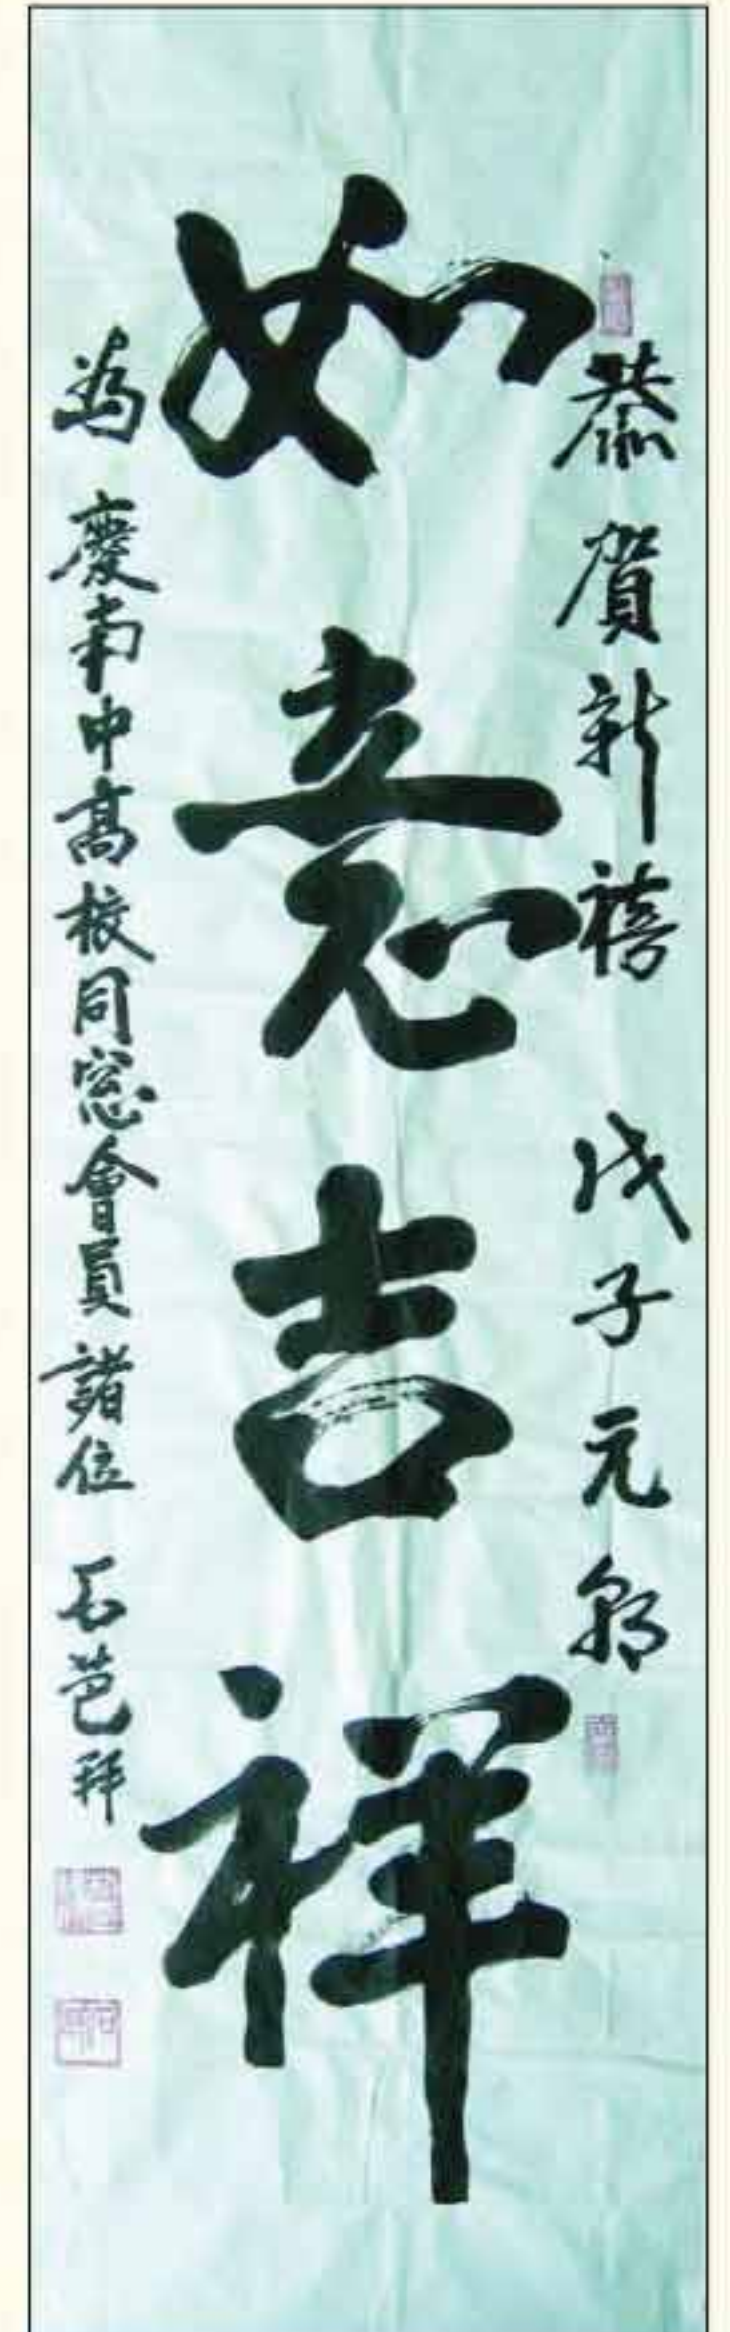 恭賀新禧 戊子元朝
如意吉祥
為 慶南中高校同窓會員 諸位 石芭拜